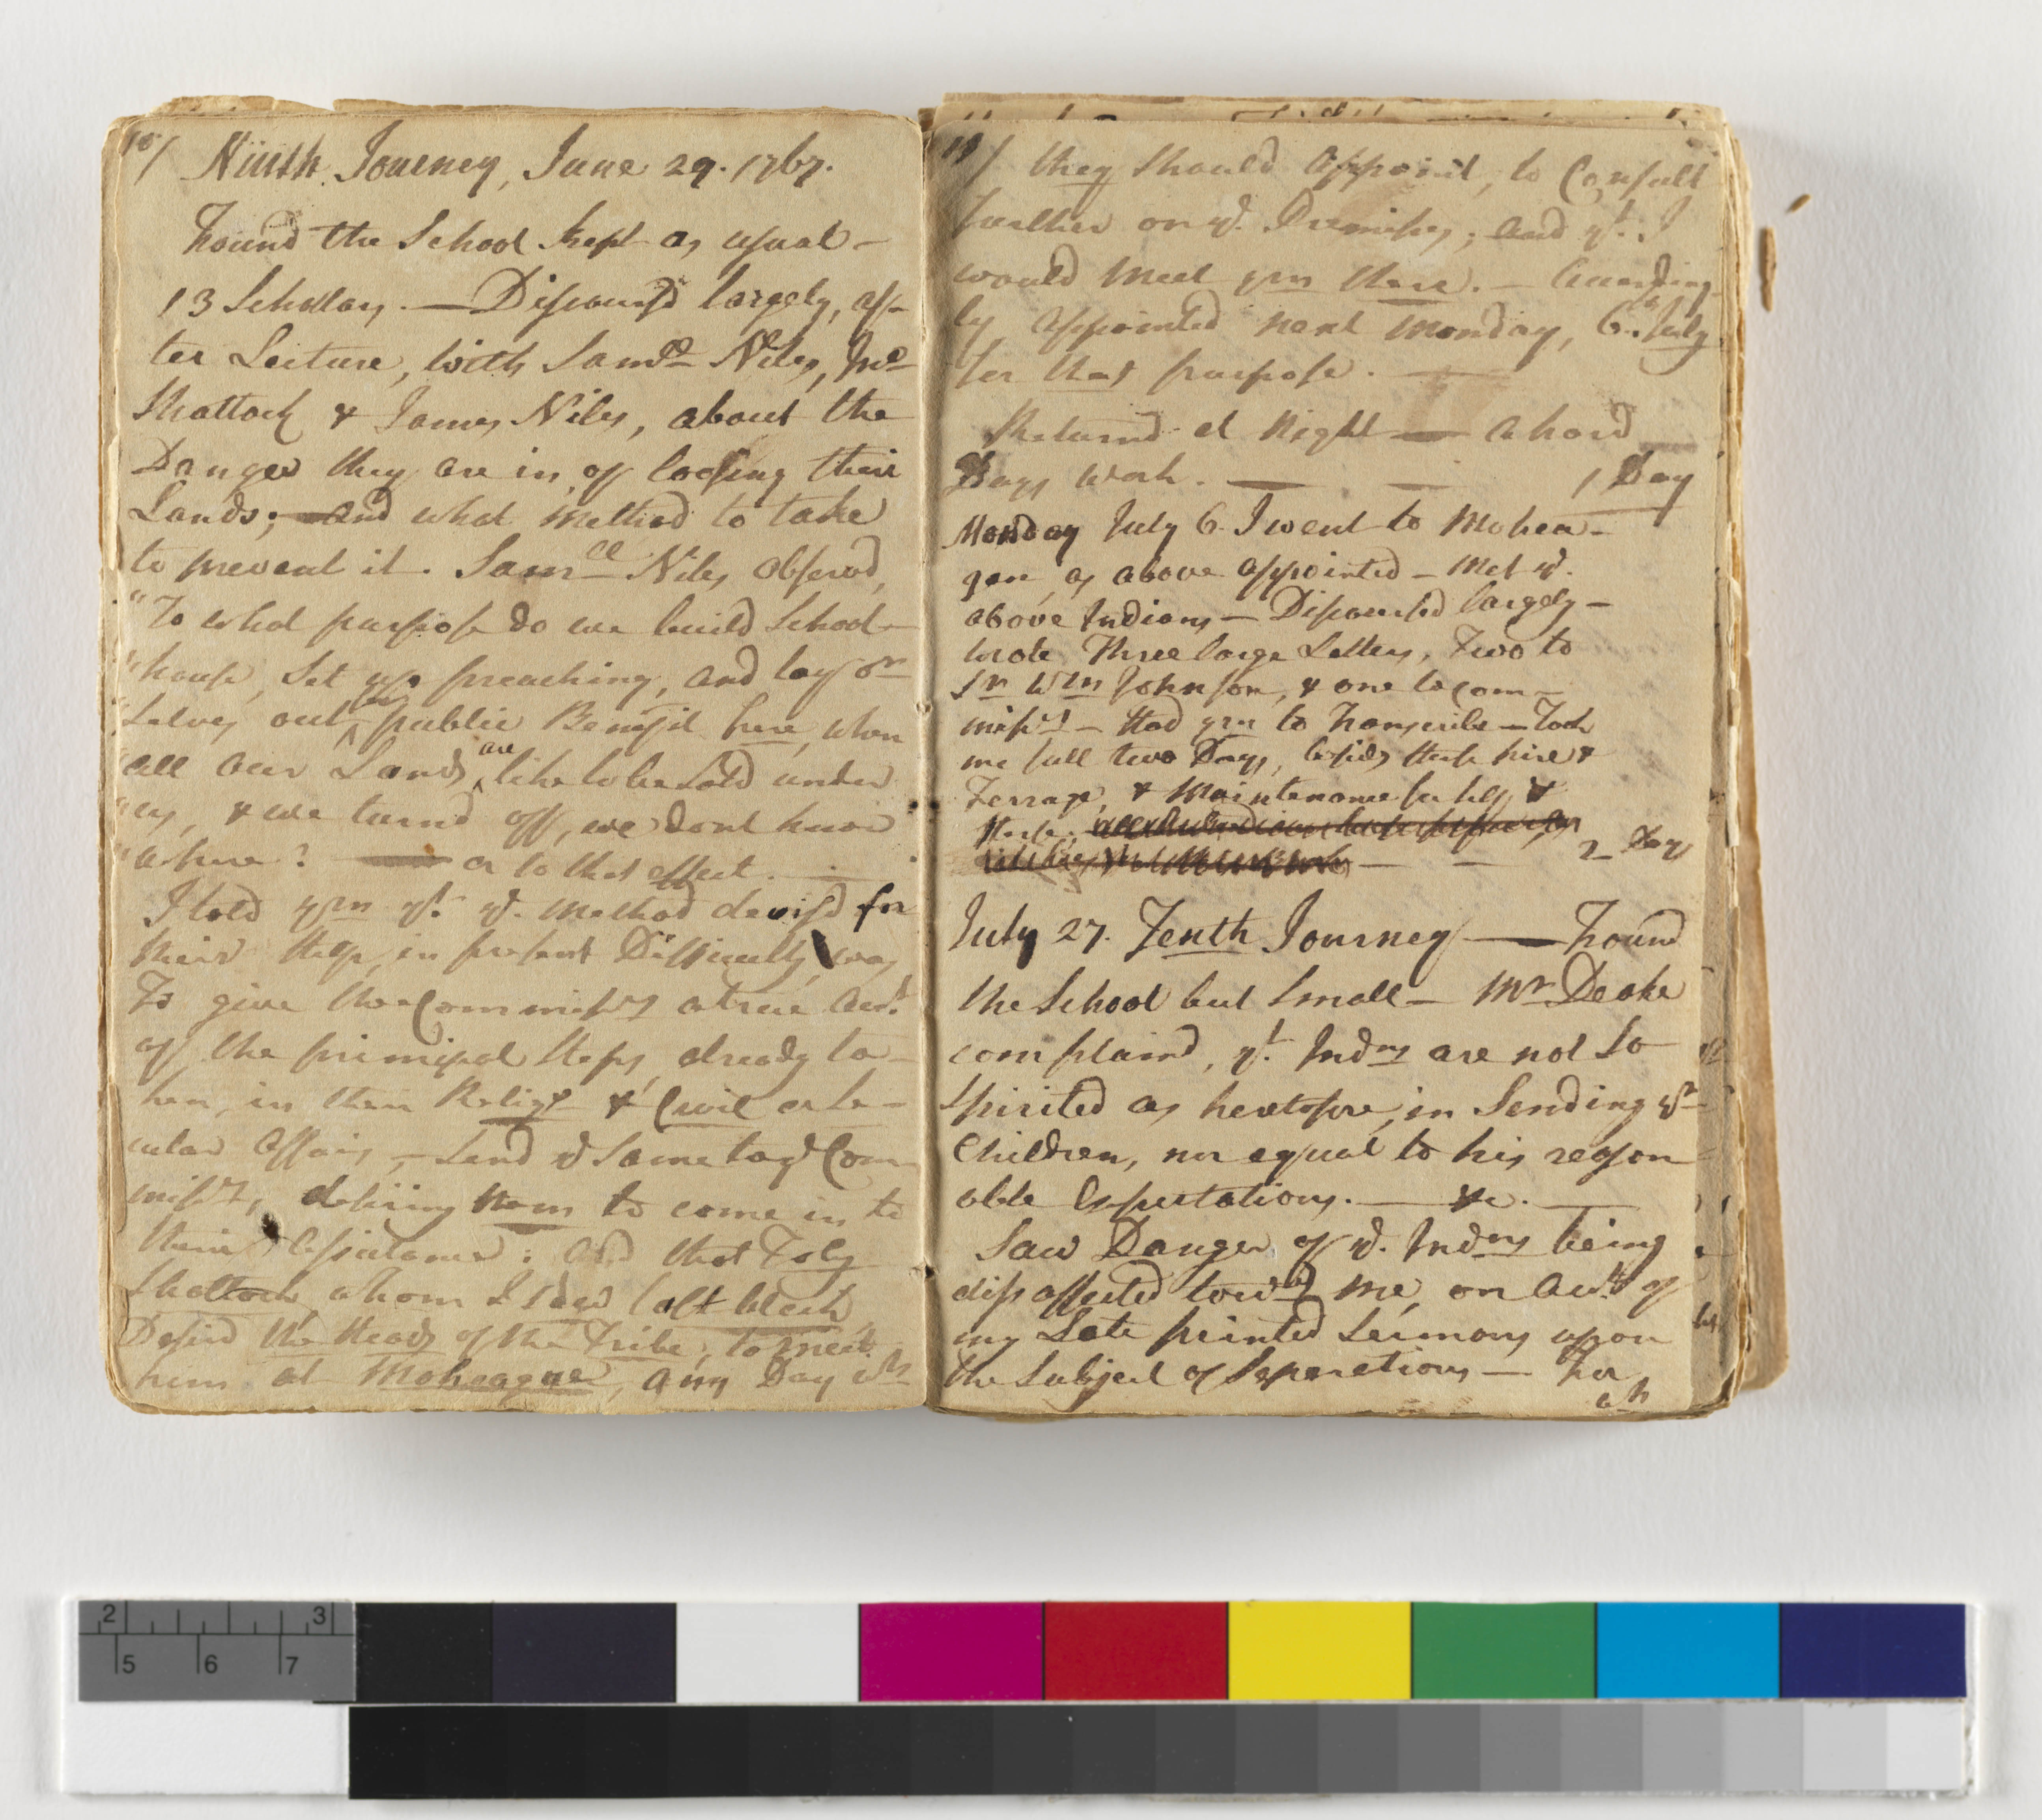 18/ Ninth Journey, June 29. 1767.
Found the School kept as usual –
13 Scholars. — Discoursd largely, af-
ter Lecture, with Samll Niles, Jno
Shattock & James Niles, about the
Danger they are in, of loosing their
Lands; — and what method to take
to prevent it. Samll Niles, Observd,
"To what purpose do we build School-
"house, Set up preaching, and lay or
"selves out for public Benefit here, when
"all our Lands are like to be Sold under
"us, & we turnd off, we dont know
"where? — or to that effect. —
I told ym yt ye method devisd for
their Help, in present Difficulty, was
To give the Commissrs a true Acct.
of the principal Steps, already ta-
ken, in their Religs & Civil or Se-
cular Affairs, – Send ye Same to ye Com-
missrs, desiring them to come in to
their Assistance: and that Toby
Shattock, whom I saw last week
Desird the Heads of the Tribe, to meet
him at Moheagan, any Day wh
19/ they should appoint, to Consult
further on ye. Premises; and yt. I
would meet ym there. – According-
ly appointed next Monday, 6.th July
for that purpose. —
Returnd at Night — a hard
Days Work. — — 1 Day
Monday July 6. I went to Mohea-
gan, as above appointed – Met ye.
above Indians – Discoursed largely –
wrote Three large Letters, Two to
Sr Wm Johnson, & one to Com-
missrs – Had ym to Transcribe – Took
me full two Days, besides Horse hire &
Ferrage, & Maintenance for self &
Horse. — — 2 Days
July 27. Tenth Journey — Found
the School but Small – Mr Deake
complaind, yt. Indns are not so
Spirited as heretofore, in Sending yr
Children, nor equal to his reason
able Expectations. — &c. —
Saw Danger of ye. Indns being
disaffected towrd me, on Acct. of
my Late printed Sermons upon
the Subject of Separations — For
wh